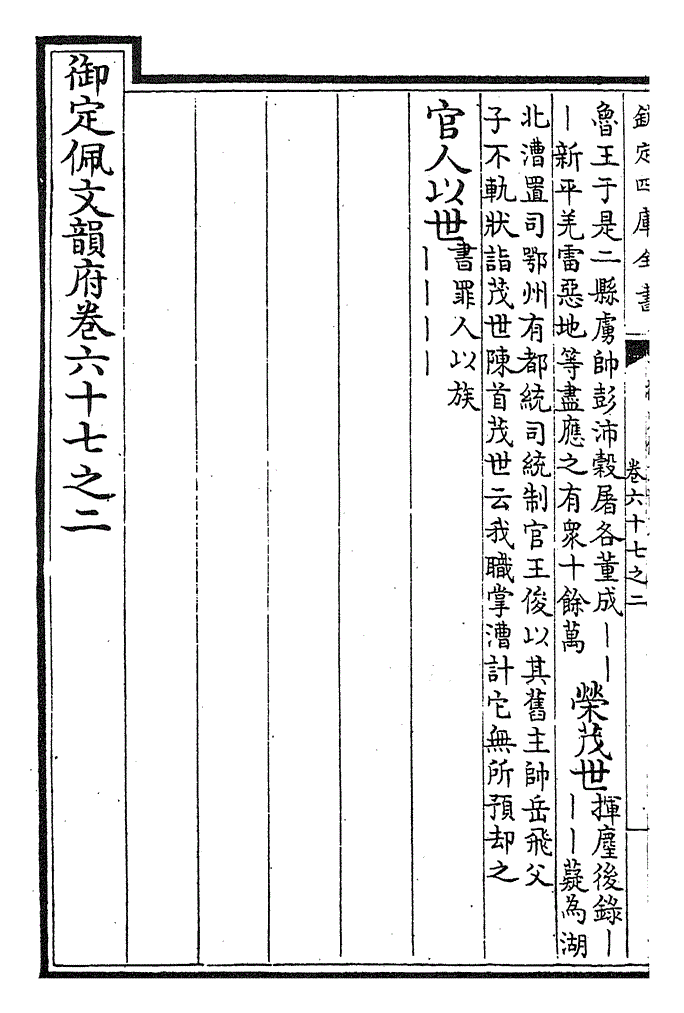 欽定四庫全書
卷六十七之二
魯王于是二縣虜帥彭沛穀屠各董成｜｜
｜新平羌雷惡地等盡應之有衆十餘萬
榮茂世
揮麈後錄｜
｜｜薿為湖
北漕置司鄂州有都統司統制官王俊以其舊主帥岳飛父
子不軌狀詣茂世陳首茂世云我職掌漕計它無所預却之
官人以世
書罪人以族
｜｜｜｜
御定佩文韻府卷六十七之二